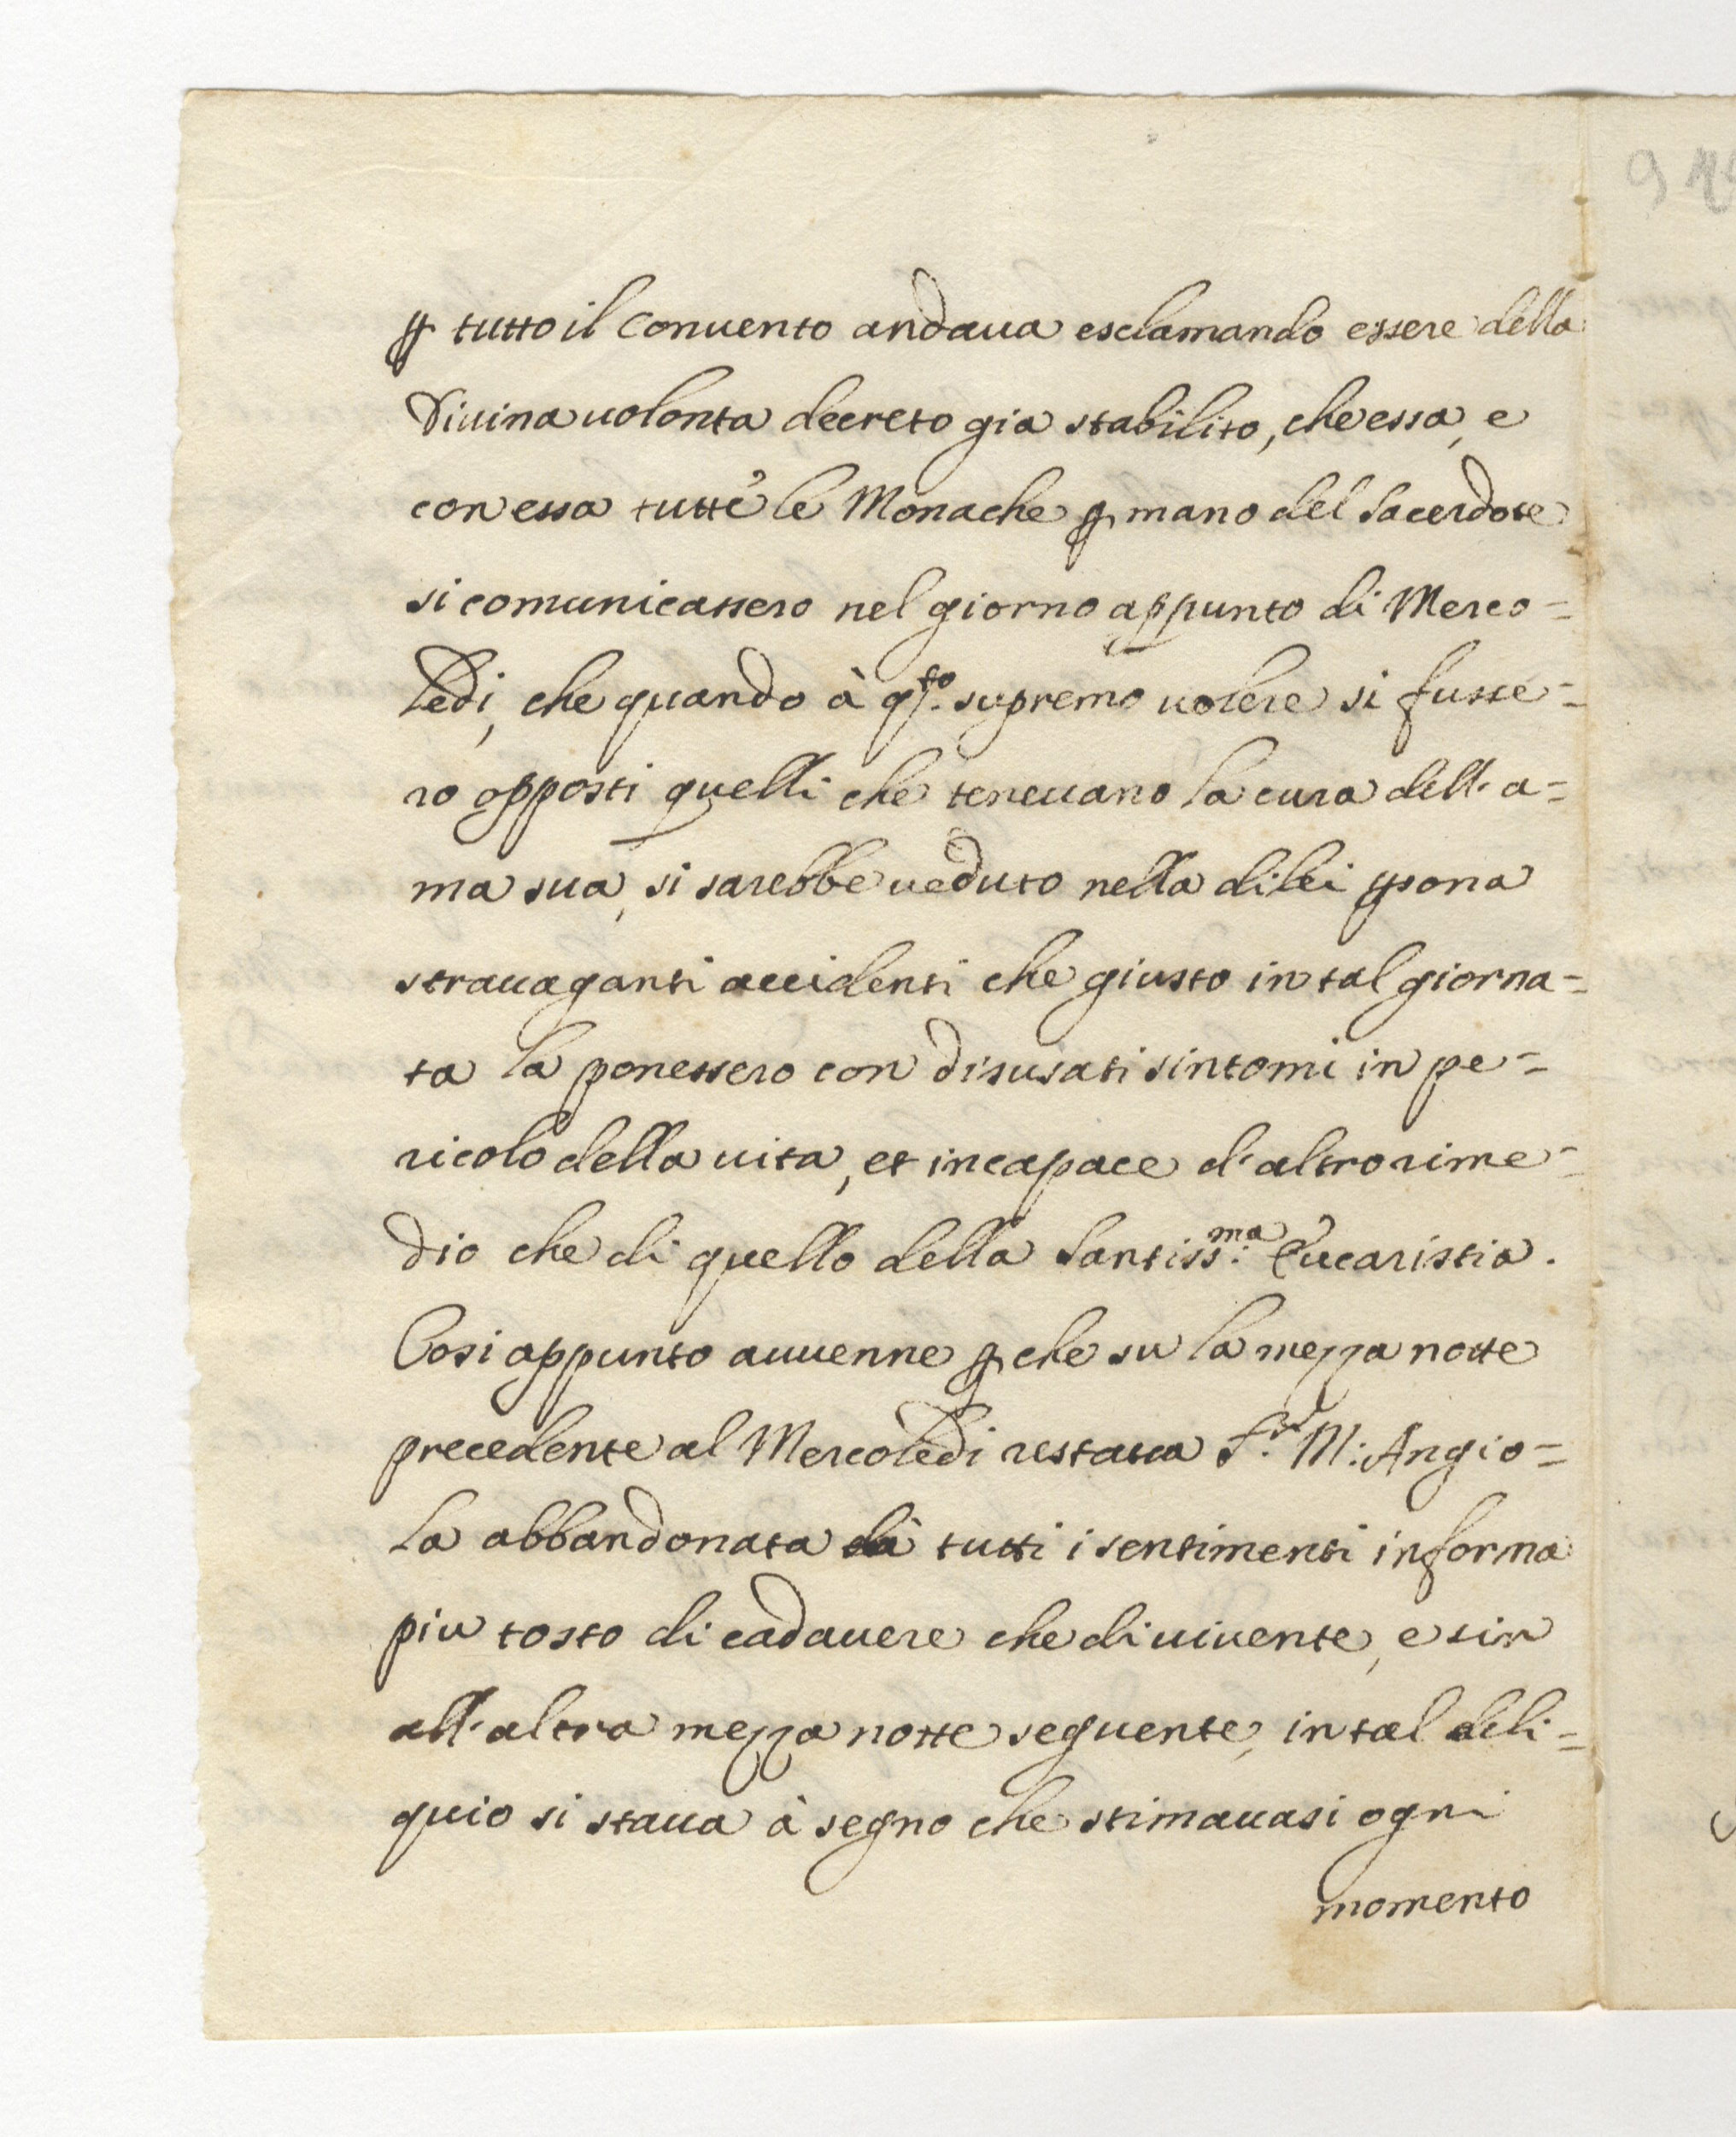 ꝑ tutto il Conuento andaua esclamando essere della
Diuina uolonta decreto gia stabilito, che essa, e
con essa tutte le Monache ꝑ mano del Sacerdote
si comunicassero nel giorno appunto di Merco=
ledi, che quando à q̃sto. supremo uolere si fusse=
ro opposti quelli che teneuano la cura dell'a=
ma sua, si sarebbe ueduto nella di lei ꝑsona
strauaganti accidenti che giusto in tal giorna=
ta la ponessero con disusati sintomi in pe=
ricolo della uita, et incapace d'altro rime=
dio che di quello della Santiss:ma Eucaristia.
Cosi appunto auuenne ꝑ che su la mezza notte
precedente al Mercoledi restaua S.r M: Angio=
la abbandonata dà tutti i sentimenti in forma
piu tosto di cadauere che di uiuente, e sin
all'altra mezza notte seguente, in tal deli=
quio si staua à segno che stimauasi ogni
momento